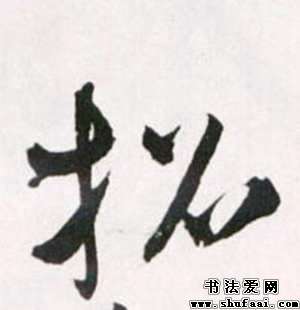 松
书法爱网
www.shufaai.com